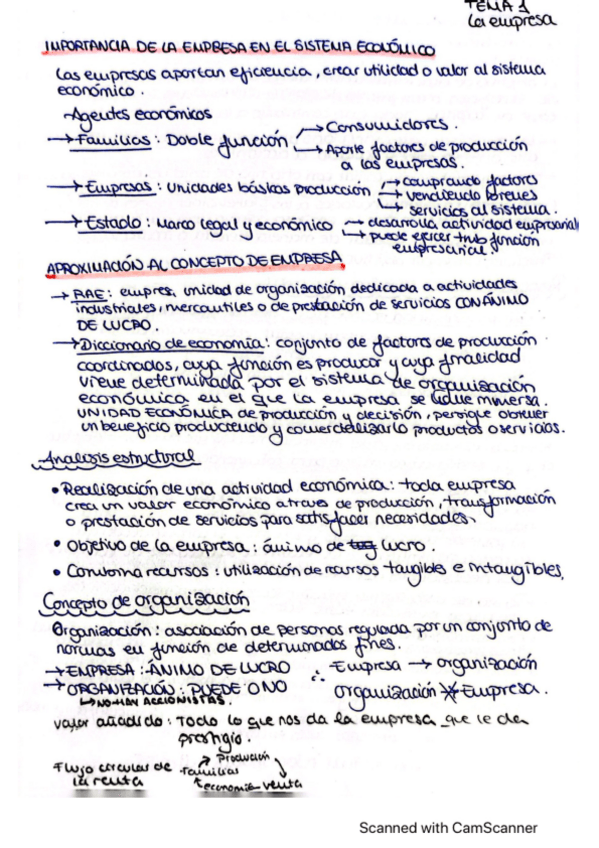 TEMA 1
La empresa
IMPORTANCIA DE LA EMPRESA EN EL SISTEMA ECONÓMICO
Las empresas aportan eficiencia, crear utilidad o valor al sistema
económico.
Agentes económicos
→ Familias: Doble función → Consumidores.
→ Aporte factores de producción
a las empresas.
→ Empresas: Unidades básicas producción → comprando factores
→ vendiendo bienes
→ servicios al sistema.
→ Estado: Marco legal y económico → desarrolla actividad empresarial
→ puede ejercer tmb función
empresarial.
APROXIMACIÓN AL CONCEPTO DE EMPRESA
→ RAE: empres, unidad de organización dedicada a actividades
industriales, mercantiles o de prestación de servicios CON ÁNIMO
DE LUCRO.
→ Diccionario de economía: conjunto de factores de producción
coordinados, cuya función es producir y cuya finalidad
viene determinada por el sistema de organización
económica en el que la empresa se halle inmersa.
UNIDAD ECONÓMICA de producción y decisión, persigue obtener
un beneficio produciendo y comercializando productos o servicios.
Analisis estructural
• Realización de una actividad económica: toda empresa
crea un valor económico atraves de producción, transformación
o prestación de servicios para satisfacer necesidades.
• Objetivo de la empresa: ánimo de lucro.
• Combina recursos: utilización de recursos tangibles e intangibles.
Concepto de organización
Organización: asociación de personas regulada por un conjunto de
normas en función de determinados fines.
→ EMPRESA: ÁNIMO DE LUCRO ∴ Empresa → organización
→ ORGANIZACIÓN: PUEDE O NO organización Empresa.
↳ NO HAY ACCIONISTAS.
valor añadido: Todo lo que nos da la empresa que le da
prestigio.
Flujo circular de la renta
Familias
Producción
economía venta
Scanned with CamScanner